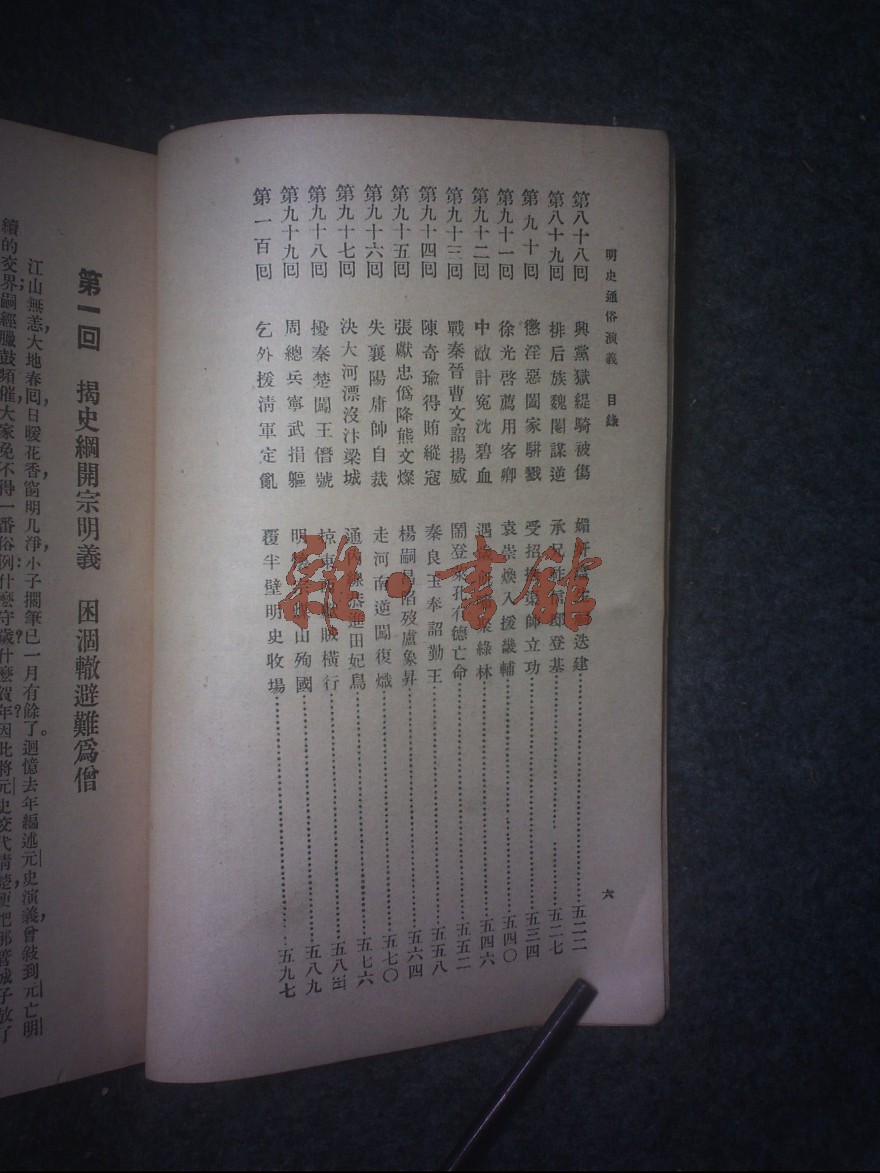 明史通俗演義　目錄
六
第八十八回　興黨獄緹騎被傷　媚　迭建　五二二
第八十九回　排后族魏閹謀逆　承兄　登基　五二七
第九十回　懲淫惡闔家駢戮　受招撫　帥立功　五三四
第九十一回　徐光啓薦用客卿　袁崇煥入援畿輔　五四〇
第九十二回　中敵計冤沈碧血　遇　綠林　五四六
第九十三回　戰秦晉曹文詔揚威　鬧登萊孔有德亡命　五五二
第九十四回　陳奇瑜得賄縱寇　秦良玉奉詔勤王　五五八
第九十五回　張獻忠僞降熊文燦　楊嗣昌陷歿盧象昇　五六四
第九十六回　失襄陽庸帥自裁　走河南逆闖復熾　五七〇
第九十七回　決大河漂沒汴梁城　通　田妃鳥　五七六
第九十八回　擾秦楚闖王僭號　掠東　賊橫行　五八三
第九十九回　周總兵寧武捐軀　明　山殉國　五八九
第一百回　乞外援淸軍定亂　覆半壁明史收場　五九七
雜·書館
第一回　揭史綱開宗明義　困涸轍避難爲僧
江山無恙，大地春回，日暖花香，窗明几淨，小子擱筆已一月有餘了。迴憶去年編述元史演義，曾敍到元亡明
續的交界；嗣經臘鼓頻催，大家免不得一番俗例，什麼守歲，什麼賀年，因此將元史交代淸楚，便把那管城子放了